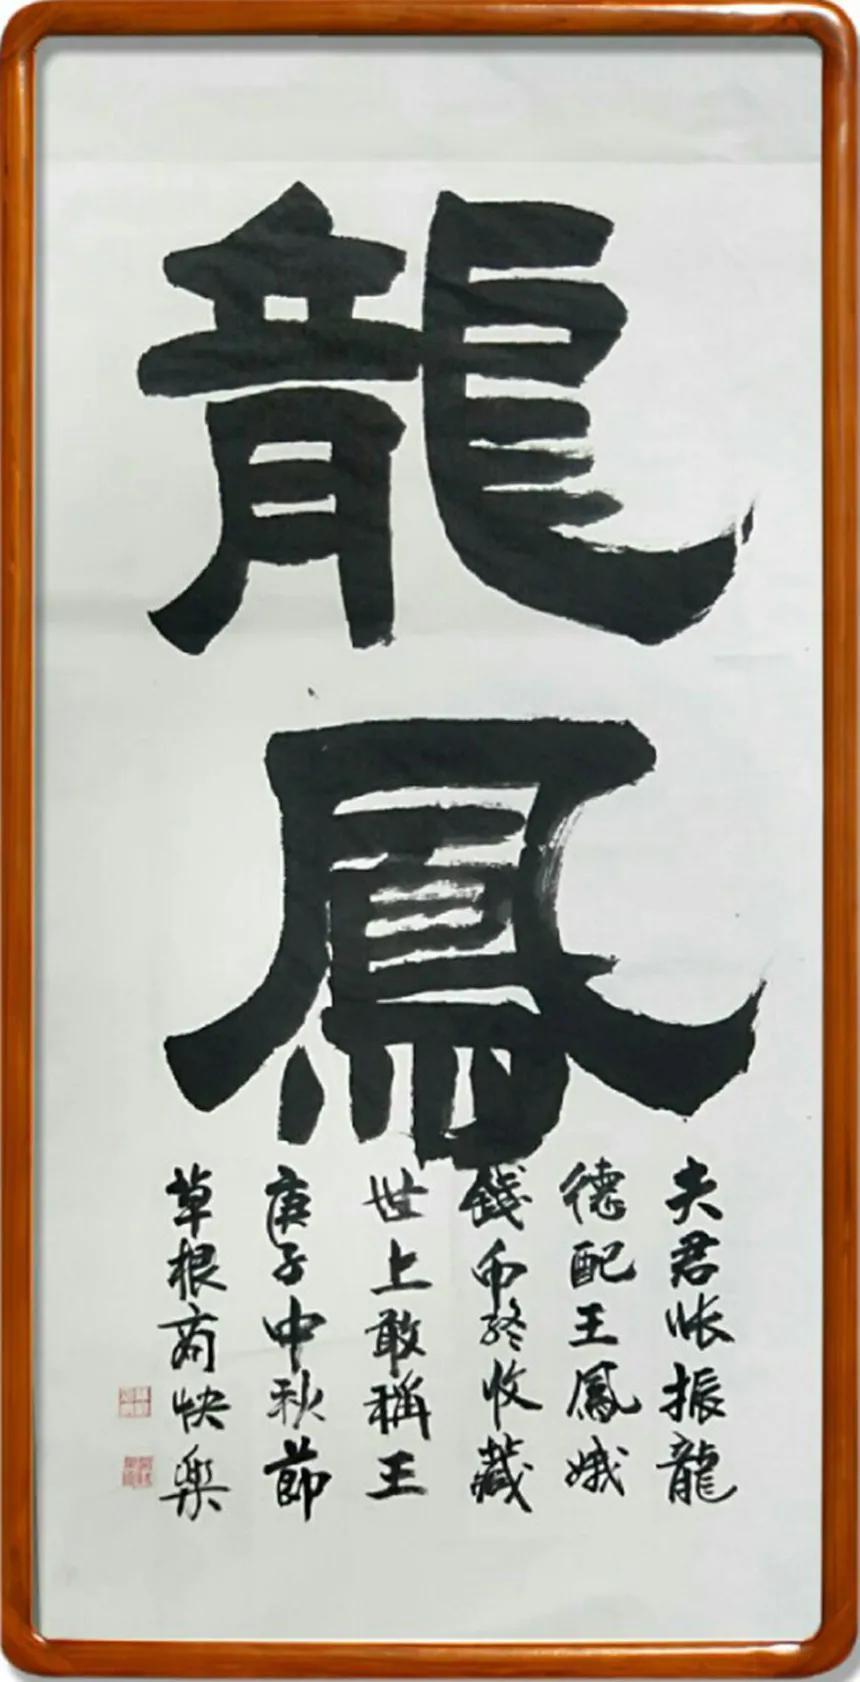 龍鳳
夫君帳振龍
德配王鳳娥
錢幣終收藏
世上敢稱王
庚子中秋節
草根商快樂